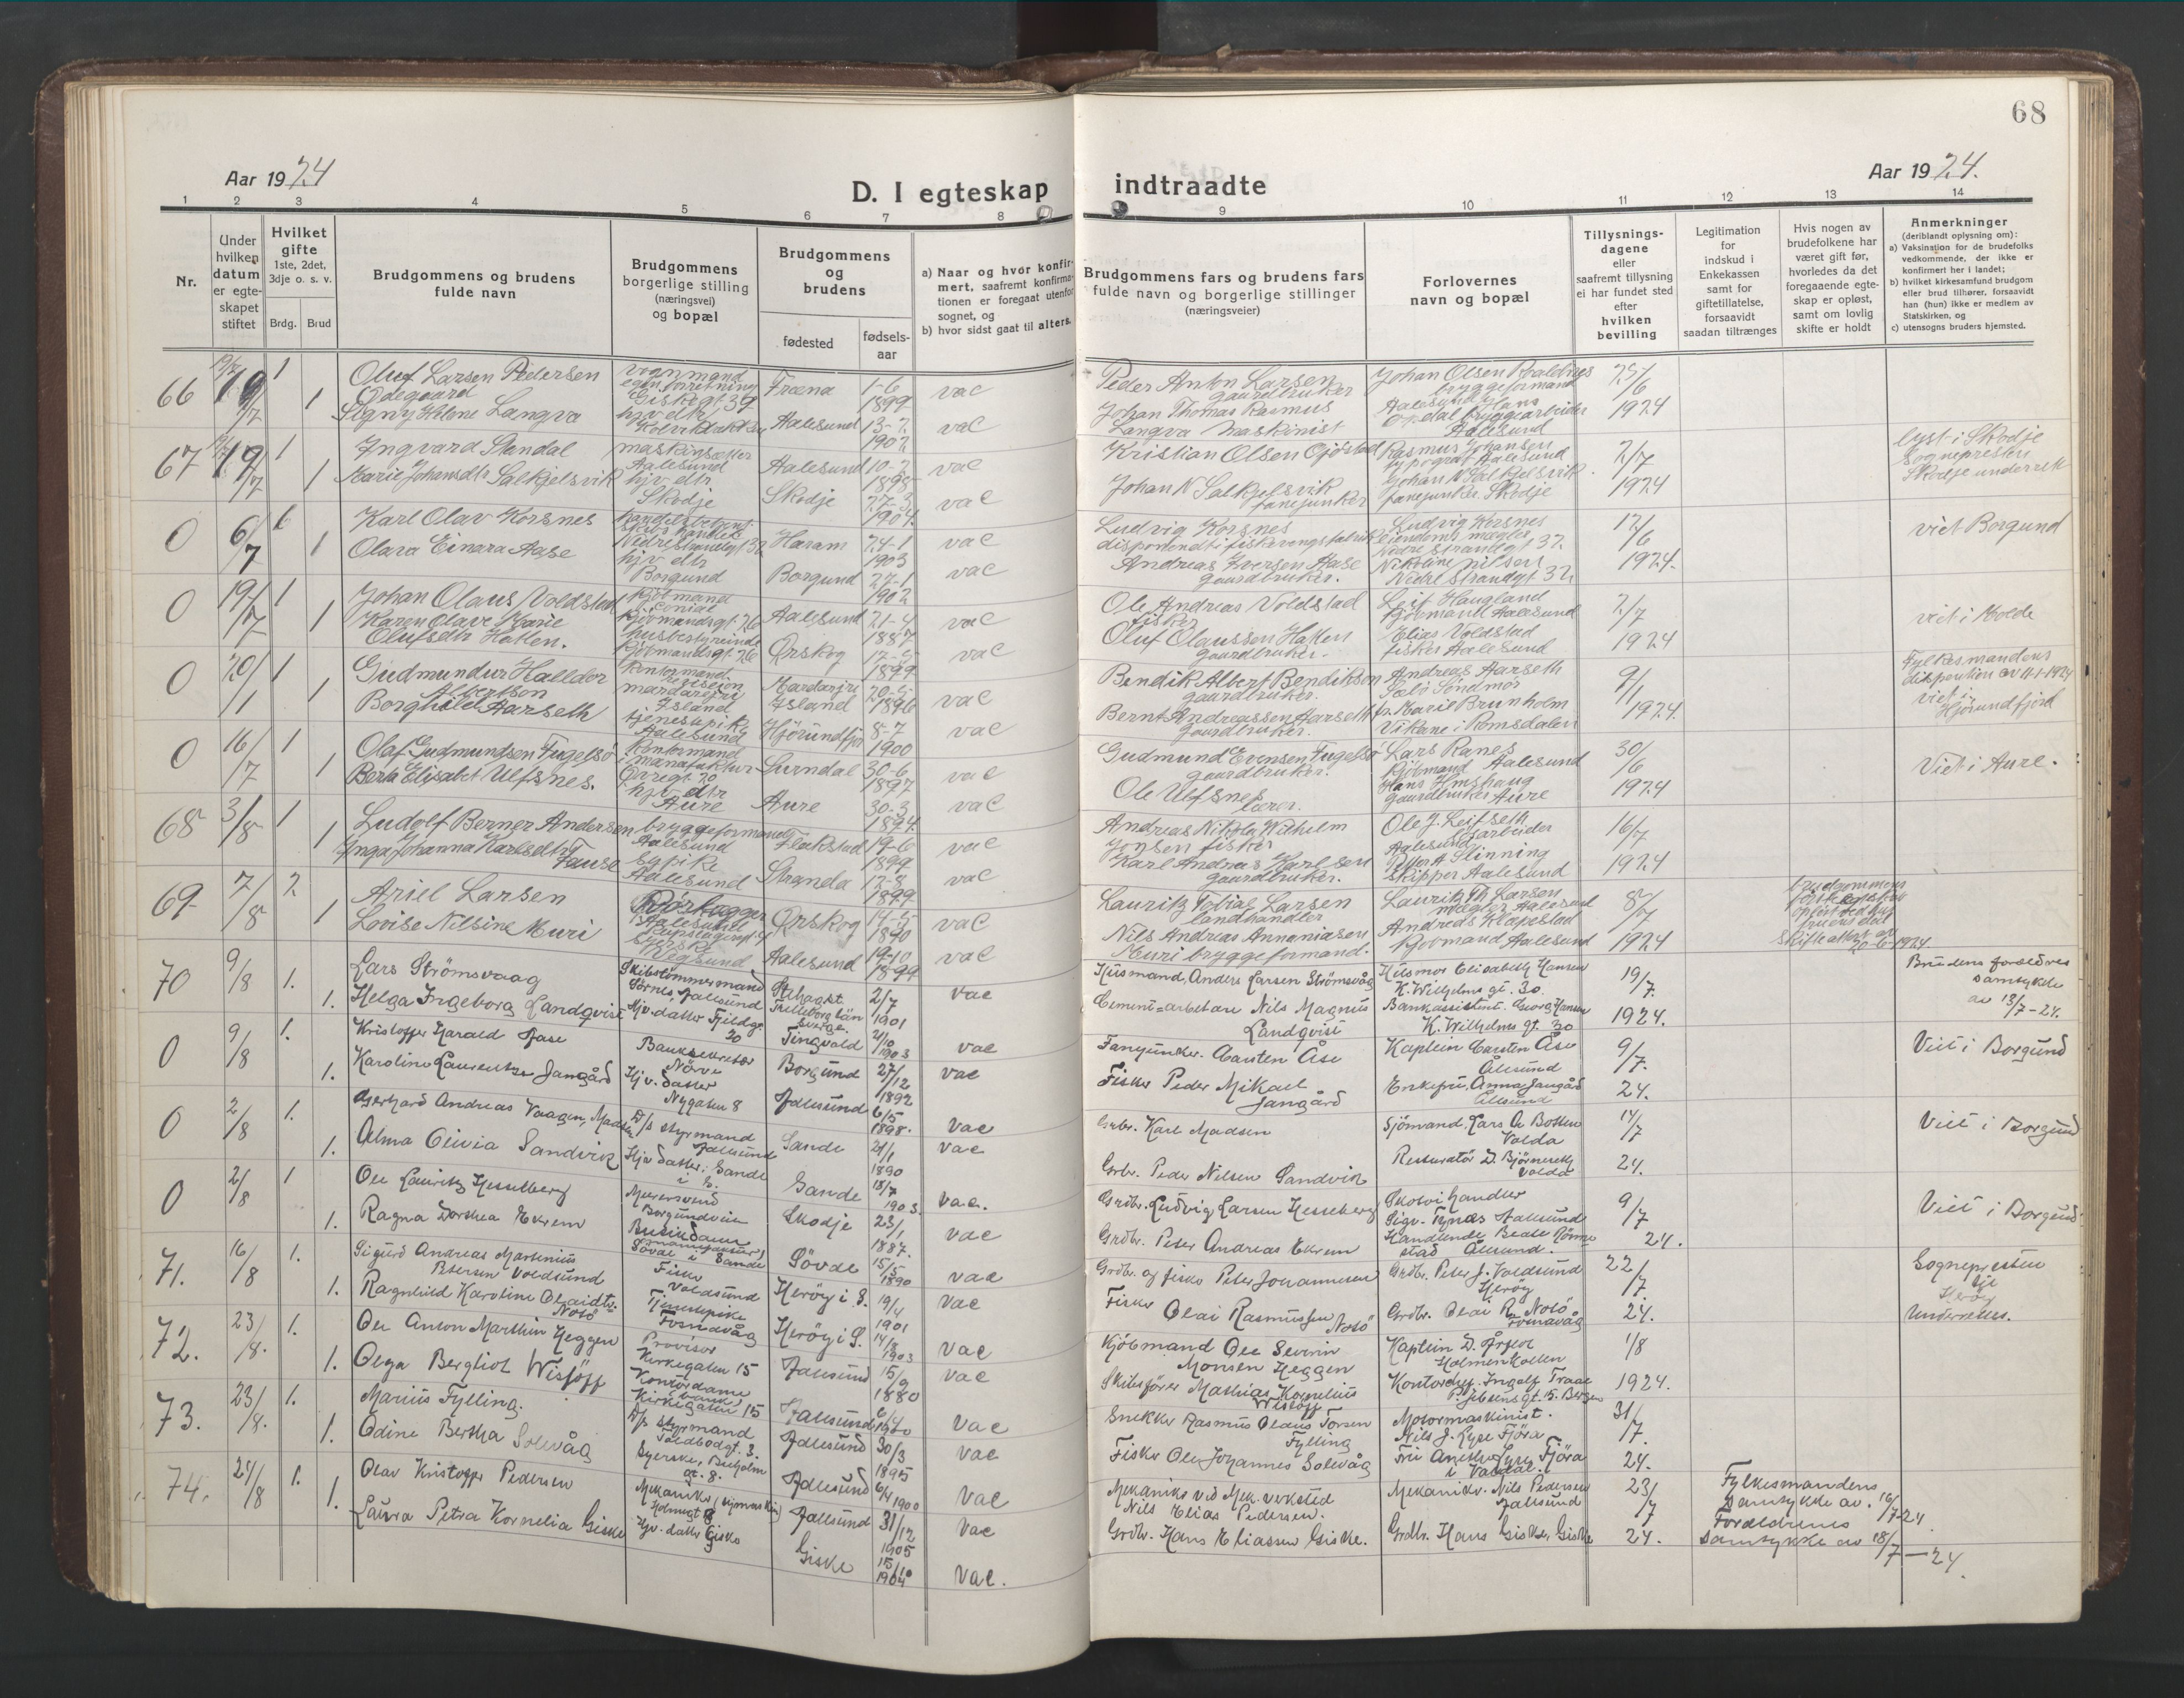 68
Aar 1924
D. I egteskap indtraadte
Aar 1924.
1 2 3 4 5 6 7 8 9 10 11 12 13 14
Nr.
Under hvilken datum er egteskapet stiftet
Hvilket gifte
1ste, 2det, 3dje o. s. v.
Brdg. Brud
Brudgommens og brudens fulde navn
Brudgommens borgerlige stilling (næringsvei) og bopæl
Brudgommens og brudens
fødested
fødselsaar
a) Naar og hvor konfirmert, saafremt konfirmationen er foregaat utenfor sognet, og
b) hvor sidst gaat til alters.
Brudgommens fars og brudens fars fulde navn og borgerlige stillinger (næringsveier)
Forlovernes navn og bopæl
Tillysningsdagene eller saafremt tillysning ei har fundet sted efter hvilken bevilling
Legitimation for indskud i Enkekassen samt for giftetillatelse, forsaavidt saadan tiltrænges
Hvis nogen av brudefolkene har været gift før, hvorledes da det foregaaende egteskap er opløst, samt om lovlig skifte er holdt
Anmerkninger
(deriblandt oplysning om):
a) Vaksination for de brudefolks vedkommende, der ikke er konfirmert her i landet;
b) hvilket kirkesamfund brudgom eller brud tilhører, forsaavidt han (hun) ikke er medlem av Statskirken, og
c) utensogns bruders hjemsted.
66 19/7 1 Oluf Larsen Pedersen
Ødegaard
1 Signy Helene Langva
vognmand
Fræna 1-6 1899 vac
hjv dtr
Aalesund 13-7 1902 vac
Peder Anton Larsen
gaardbruker
Johan Thomas Rasmus
Langva Maskinist
bryggeformand
Aalesund
25/6
1924
67 19/7 1 Ingvard Standal
1 Marie Johansdtr Salkjelsvik
Aalesund
hjv dtr
Skodje
Aalesund 10-2 1898 vac
Skodje 27-3 1904 vac
Kristian Olsen Gjøstad
Johan N Salkjelsvik
fanejunker
Rasmus Johansen
typograf Aalesund
Johan N Salkjelsvik
fanejunker Skodje
2/7
1924
lyst i Skodje
Sognepresten
Skodje underrett
0 6/7 Karl Olav Korsnes
1 Olara Einara Aase
Nedre Strandgt 32
hjv dtr
Borgund
Haram 24-1 1903 vac
Borgund 27-1 1902 vac
Ludvig Korsnes
Andreas Iversen Aase
gaardbruker.
Ludvig Korsnes
Nedre Strandgt 32.
Nikoline Nilsen
Nedre Strandgt 32
12/6
1924.
viet Borgund
0 19/7 1 Johan Olaus Voldstad
1 Karen Olave Marie
Olufsdtr Hatlen.
Kjøbmand
Kjøbmandsgt 26
husbestyrerinde
Kjøbmandsgt. 26
Aalesund 21-4 1887 vac
Ørskog 17-5 1899 vac
Ole Andreas Voldstad
fisker
Oluf Olaussen Hatlen
gaardbruker.
Leif Haugland
Kjøbmand Aalesund
Elias Voldstad
fisker Aalesund
2/7
1924
viet i Molde
0 20/1 1 Gudmundur Halldor
Albertson
1 Borghild Aarseth
Island
tjenestepike
Aalesund
Island 20-5 1896 vac
Hjørundfjor 8-7 1900 vac
Bendik Albert Bendikson
gaardbruker.
Bernt Andreassen Aarseth
gaardbruker.
Andreas Aarseth
fr. Marie Brunholm
Vikane i Romsdalen
9/1
1924.
Fylkesmandens
viet i
Hjørundfjord
0 16/7 1 Olaf Gudmundsen Fugelsø
1 Berta Elisabet Ulfsnes.
Kontormand
i manufaktur
hjv dtr
Aure
Surndal 30-6 1897 vac
Aure 30-3 1894 vac
Gudmund Evensen Fugelsø
gaardbruker.
Ole Ulfsnes
lærer.
Lars Ranes
Kjøbmand Aalesund
gaardbruker Aure
30/6
1924
Viet i Aure.
68 3/8 1 Ludolf Berner Andersen
1 Inga Johanna Karlsdtr
Fause
bryggeformand
Aalesund
Sypike
Aalesund
Flakstad 19-6 1899 vac
Stranda 17-8 1899 vac
Andreas Nikolai Wilhelm
Jonsen fisker
Karl Andreas Karlsen
gaardbruker.
Ole J. Leifseth
Aalesund
Petter A Slinning
Skipper Aalesund
16/7
1924
69 7/8 2 Ariel Larsen
1 Lovise Nilsine Muri
Aalesund
Syerske
Vegsund
Ørskog 14-5 1890 vac
Aalesund 19-10 1899 vac
Lauritz Tobias Larsen
landhandler
Nils Andreas Annaniasen
Muri bryggeformand.
Lauritz Th Larsen
mægler Aalesund
Andreas Klapestad
Kjøbmand Aalesund
8/7
1924
brudgommens
første egteskap
opløst ved hustruens død
Skifteattest av
20-6-1924.
70 9/8 1. Lars Strömsvaag
1. Helga Ingeborg Landqvist
Skibstömmermand
Sörnes, Aalesund
Hjv. datter Fjeldgt.
30
2/7 1901 vac
Trelleborg län
Sverge. 21/10 1903
Husmand, Anders Larsen Strömsvåg
Cement=arbetare Nils Magnus
Landqvist
Husmor Elisabeth Hansen
K. Wilhelms gt. 30.
Bankassistent. Georg Hansen
K. Wilhelms gt. 30
19/7.
1924.
Brudens forældres
samtykke
av 18/7-24.
0 9/8 1. Kristoffer Harald Aase
1. Karoline Laurentse Gangård
Banksekretær
Nörve
Hjv. datter
Nygaten 8
Tingvold vac
Borgund 27/12 1892 vac
Aalesund 6/5 1898.
Fanejunker. Carsten Åse
Fisker Peder Mikael
Gangård
Kaptein Carsten Åse
Ålesund
Enkefru. Anna Gangård
Ålesund
9/7.
24.
Viet i Borgund
0 2/8 1. Gerhard Andreas Vaagen, Madsen
1. Alma Olivia Sandvik
D/s styrmand
Aalesund
Hjv. datter. Sande
i S.
vac
Sande 21/1 1890 vac
Sande 18/7 1903.
Grbr. Karl Madsen
Grbr. Peder Nilsen Sandvik
Sjömand. Lars A Botten
Volda
Restauratör D. Bjørneseth
Volda
14/7
24.
Viet i Borgund
0 2/8 1 Ole Lauritz Hesselberg
1. Ragna Dorthea Ekrem
Murersvend
Borgundveien
Sövde i Sande
vac.
Skodje 23/1 1887. vac
Sövde 15/5 1890
Grdbr. Ludvig Larsen Hesselberg
Grdbr. Peter Andreas Ekrem
Skotöihandler
Sigv. Tynæs Aalesund
Ålesund.
9/7
24.
Viet i Borgund.
71. 16/8 1. Sigurd Andreas Martinius
Petersen Voldsund
1. Ragnhild Karoline Olaidtr.
Notö
Fisker
Voldsund
Tjenestepike
Fosnavåg
vac
Heröy i S. 19/4 1901 vac
Heröy i S. 14/8 1903
Grdbr. og fisker Peter Johannesen
Fisker Olai Rasmussen
Notö
Grdbr. Peter J. Voldsund
Heröy
Grdbr. Olai R. Notö
Fosnavåg
22/7.
24.
Sognepresten
til
Heröy
Underrettet.
72. 23/8. 1. Ole Anton Marthin Heggen
1. Olga Bergliot Wisjöff
Provisor
Kirkegaten 15
Kontordame
Kirkegaten 15
vac
Aalesund 15/9 1880 vac
Aalesund
Kjöbmand Ole Severin
Monsen Heggen
Skibsförer Mathias Kornelius
Kaptein D. Årset
Holmenkollen
Kontorchef. Ingolf Traae
1/8
1924.
73. 23/8. 1. Marius Fylling.
1. Odine Bertha Solevåg
D/s styrmand
Toldbodgt. 3.
Syerske, Buholm
gt. 8.
vac
Aalesund 30/3 1895 vac
Aalesund 6/4 1900
Snekker Rasmus Olaus Torsen
Fylling
Fisker Ole Johannes Solevåg
Motormaskinist.
i Valldal.
31/7.
24.
74. 24/8 1. Olav Kristoffer Pedersen
1. Laura Petra Kornelia Giske
Mekaniker
Hjv. datter Giske
vac
Aalesund 31/12 1905 vac
Giske 15/10 1904 vac.
Mekaniker ved Mek. verksted
Nils Elias Pedersen.
Grdbr. Hans Eliassen Giske.
Mekaniker. Nils Pedersen
Aalesund
Grdbr. Hans Giske, Giske
23/7
24.
Fylkesmandens
samtykke av. 16/7-24.
Forældrenes
samtykke av 18/7-24.